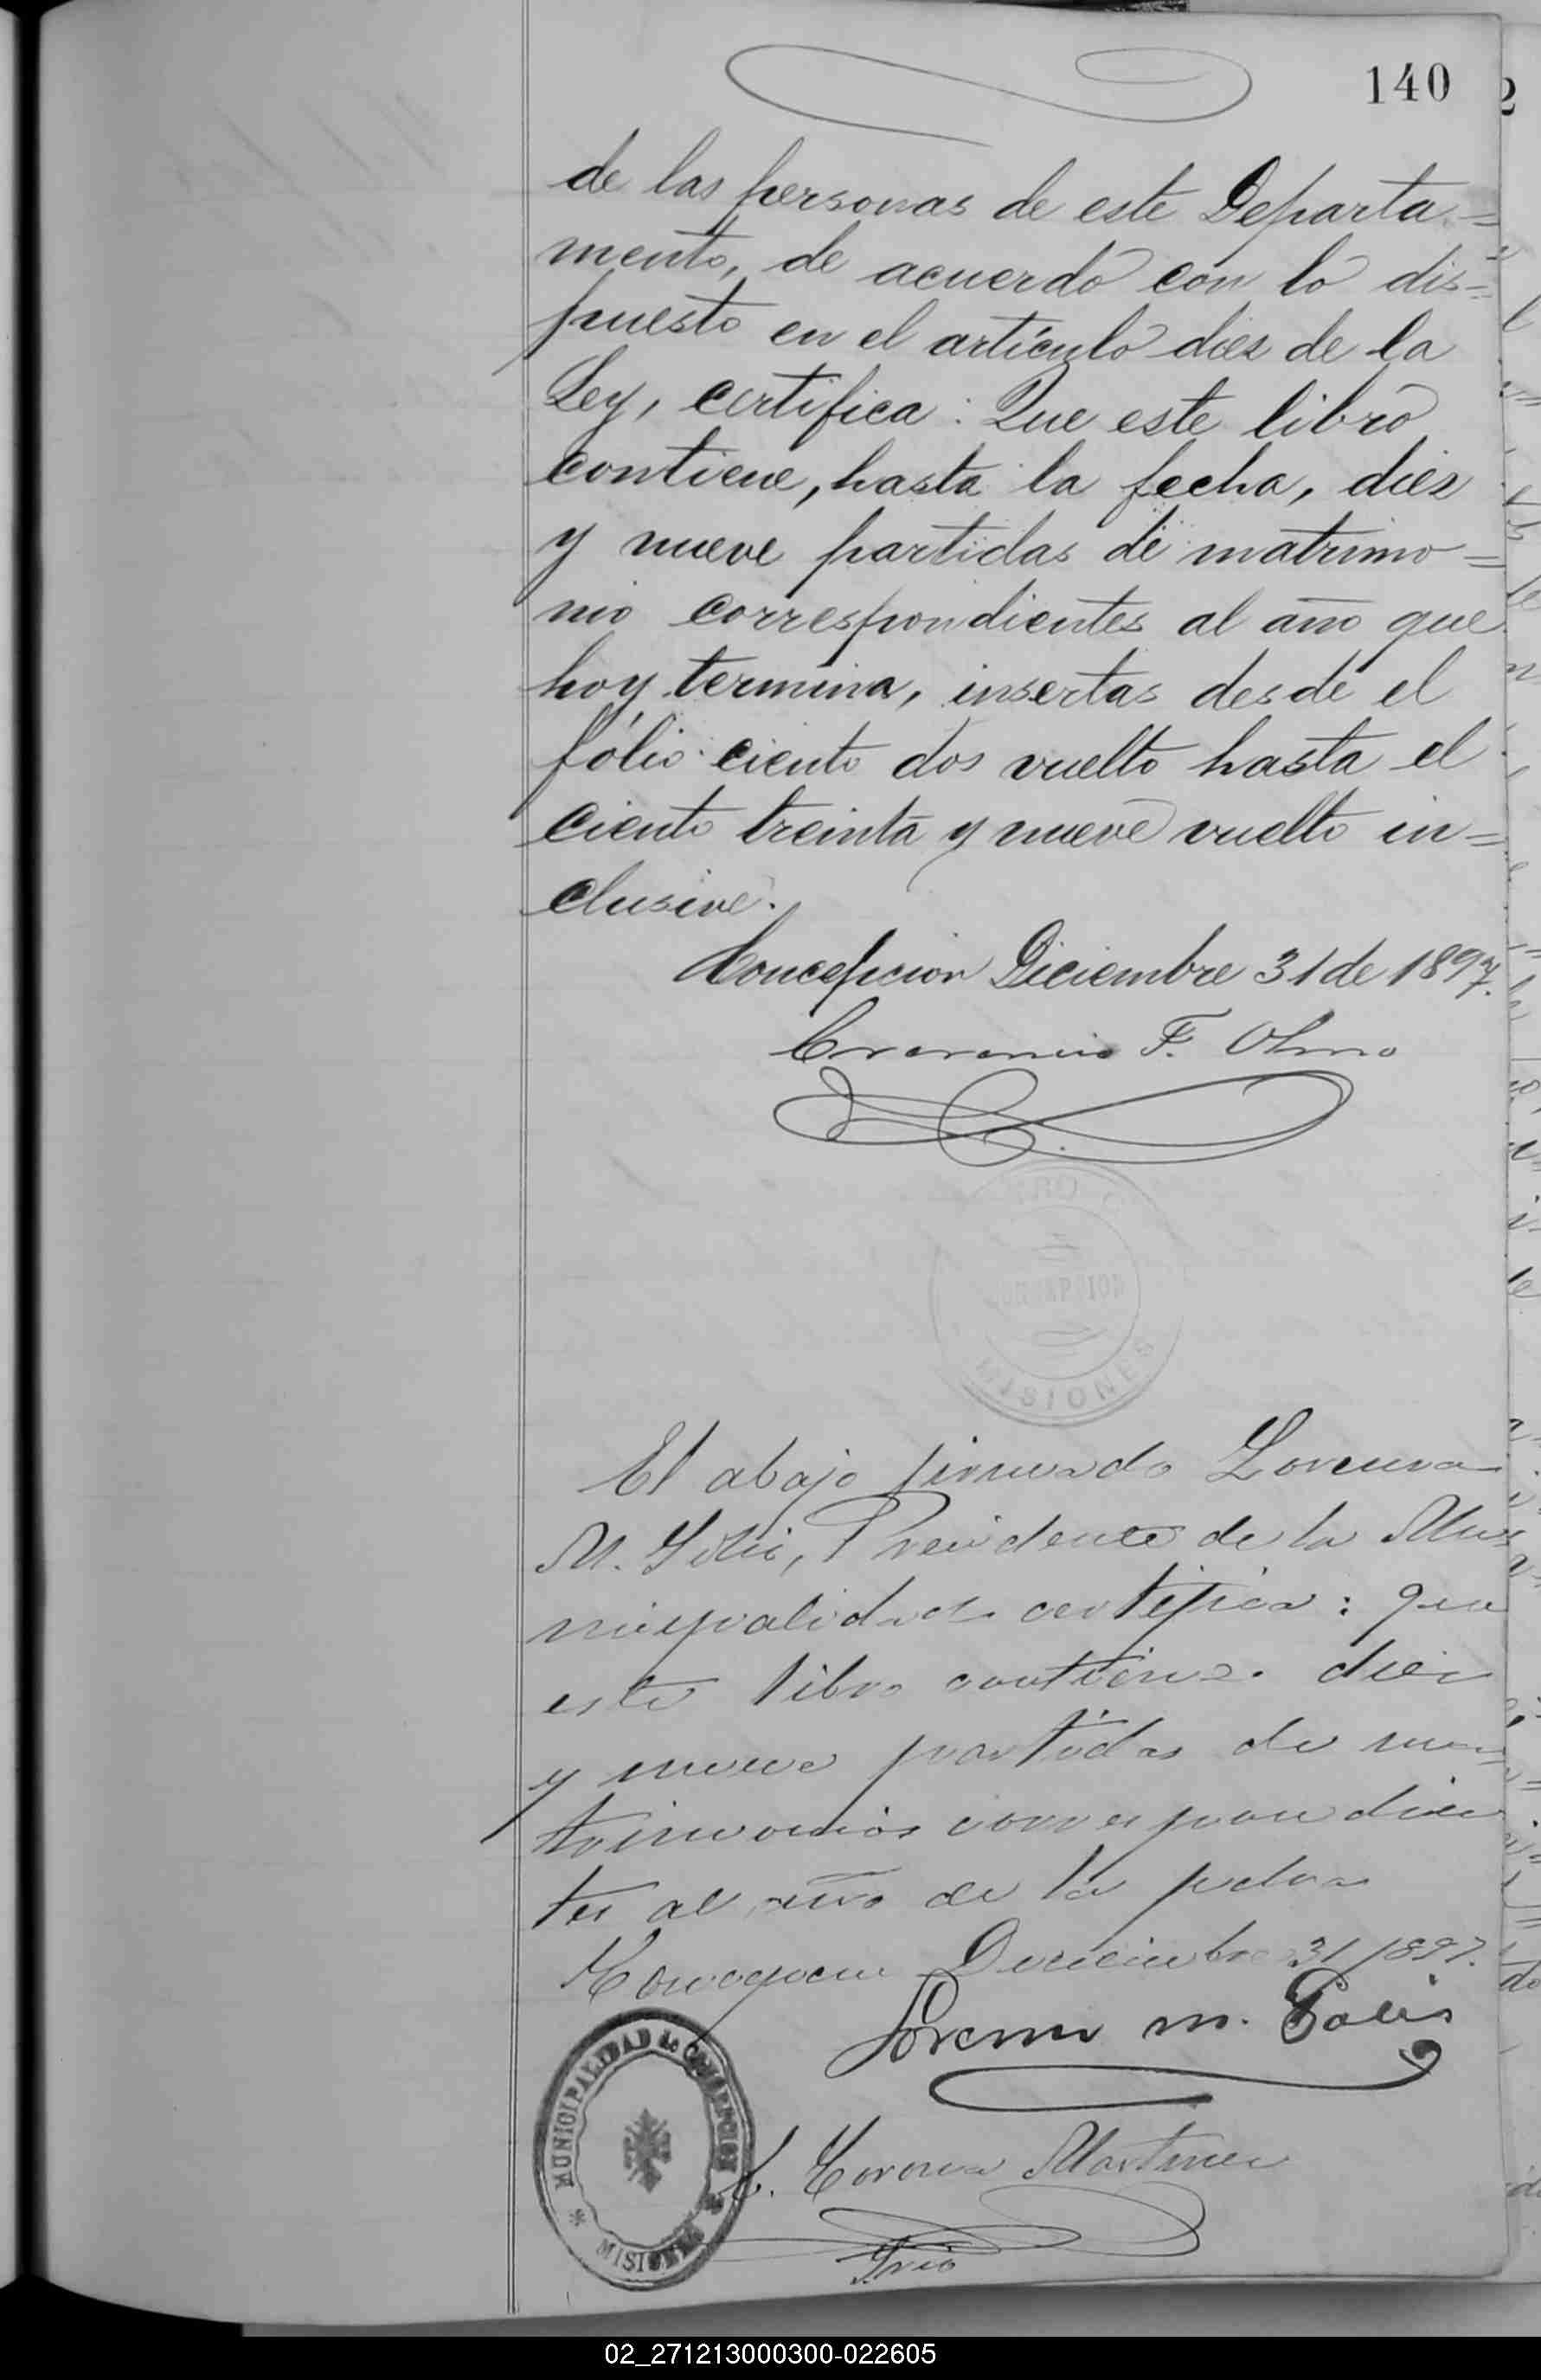 140
de las personas de este Departa=
mento, de acuerdo con lo dis=
puesto en el artículo diez de la
Ley, certifica: Que este libro
contiene, hasta la fecha, diez
y nueve partidas de matrimo=
nio correspondientes al año que
hoy termina, insertas desde el
fólio ciento dos vuelto hasta el
ciento treinta y nueve vuelto in=
clusive.
Concepcion Diciembre 31 de 1897.
F. Olmo
CONCEPCION
MISIONES
El abajo firmado
M. Presidente de la Mu
nicipalidad certifica: que
este libro contiene diez
y nueve partidas de ma
trimonios correspondien
tes al año de la fecha
Diciembre 31/1897.
M.
MUNICIPALIDAD de CONCEPCION
MISIONES
Martinez
Srio
02_271213000300-022605